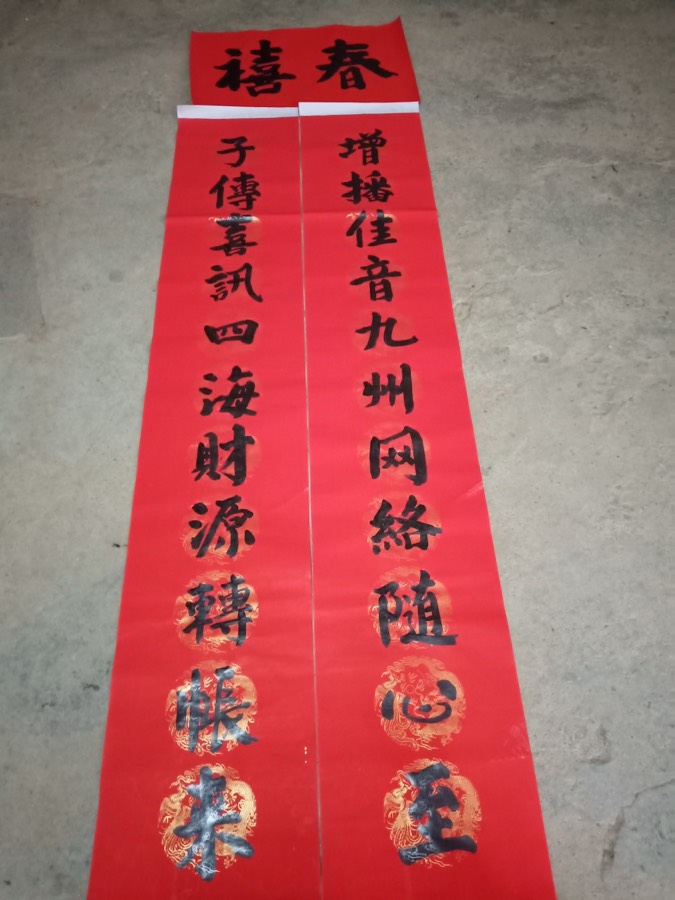 春禧
增播佳音九州网絡隨心至
子傳喜訊四海財源轉帳来